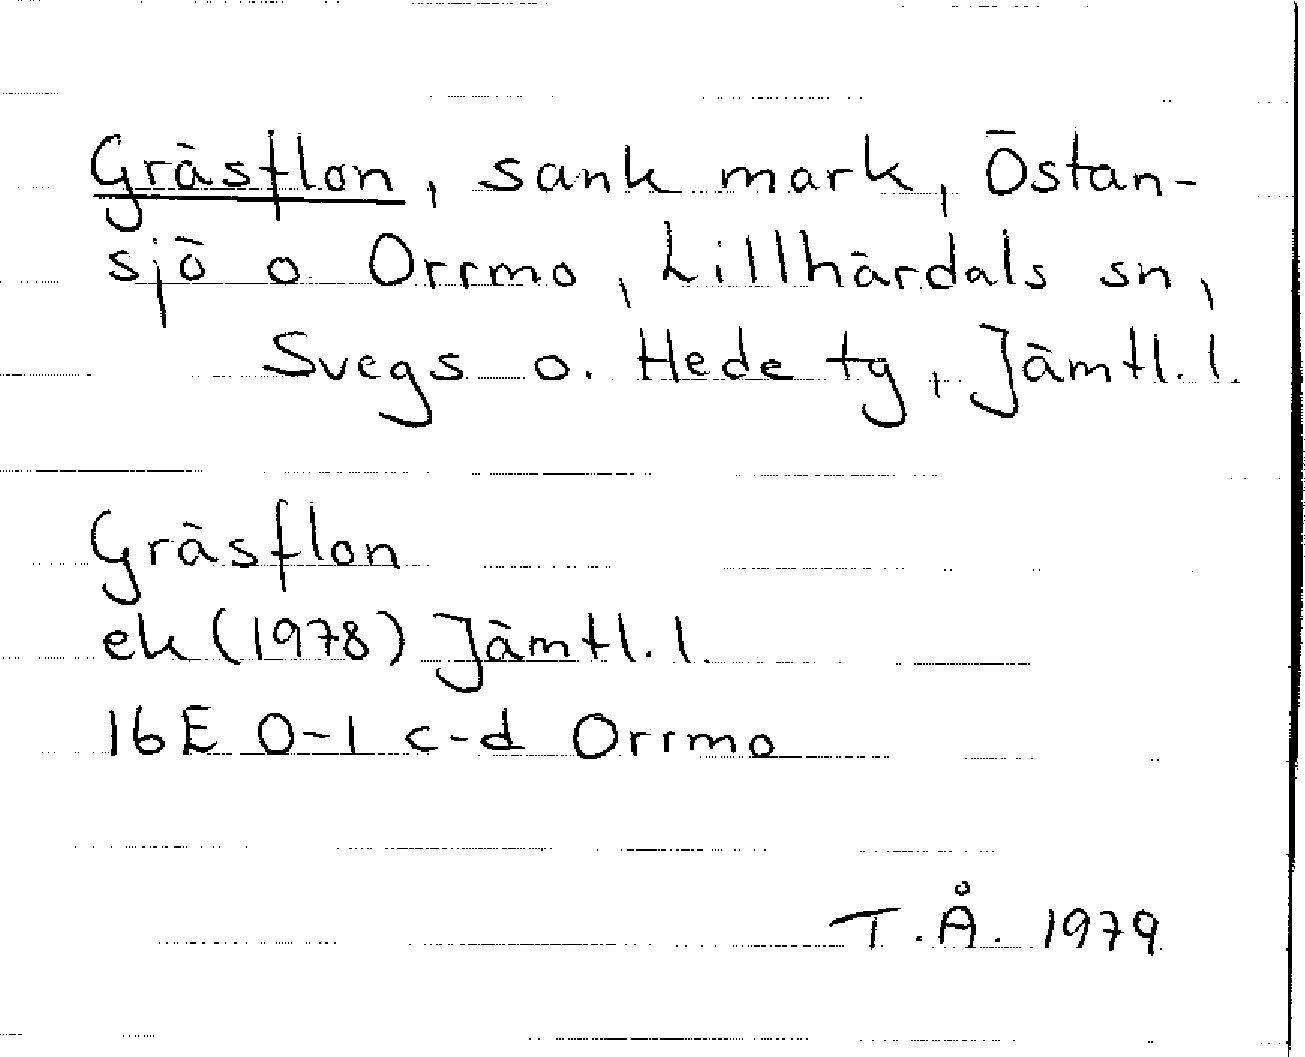 Gräsflon, sank mark, Östan-
sjö o Orrmo, Lillhärdals sn,
Svegs o. Hede tg, Jämtl. l.
Gräsflon
ek (1978) Jämtl. l.
16E 0-1 c-d Orrmo
T.Å. 1979